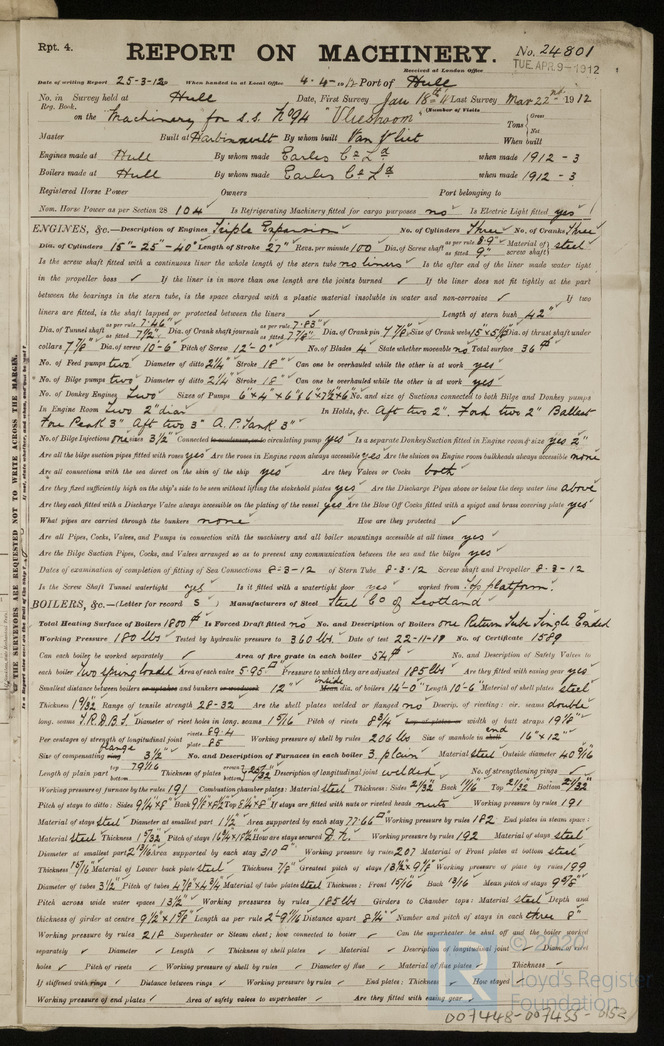 Rpt. 4.
REPORT ON MACHINERY.
No. 24801
Received at London Office
TUE. APR. 9-1912
Date of writing Report 25-3-12 When handed in at Local Office 4-4-1912 Port of Hull
No. in Survey held at Hull Date, First Survey Jan 18th Last Survey Mar 22nd 1912
Reg. Book. (Number of Visits
on the Machinery for s.s. No 94 "Vliestroom"
Tons Gross Net
Master Built at By whom built Van Vliet When built
Engines made at Hull By whom made Earles Co Ld when made 1912 - 3
Boilers made at Hull By whom made Earles Co Ld when made 1912 - 3
Registered Horse Power Owners Port belonging to
Nom. Horse Power as per Section 28 104 Is Refrigerating Machinery fitted for cargo purposes no Is Electric Light fitted yes
ENGINES, &c.—Description of Engines Triple Expansion No. of Cylinders Three No. of Cranks Three
Dia. of Cylinders 15"-25"-40" Length of Stroke 27" Revs. per minute 100 Dia. of Screw shaft as per rule 8.9" as fitted 9" Material of screw shaft steel
Is the screw shaft fitted with a continuous liner the whole length of the stern tube no liners Is the after end of the liner made water tight
in the propeller boss ✓ If the liner is in more than one length are the joints burned ✓ If the liner does not fit tightly at the part
between the bearings in the stern tube, is the space charged with a plastic material insoluble in water and non-corrosive ✓ If two
liners are fitted, is the shaft lapped or protected between the liners ✓ Length of stern bush 42"
Dia. of Tunnel shaft as per rule 7.46" as fitted 7 1/2" Dia. of Crank shaft journals as per rule 7.83" as fitted 7 7/8" Dia. of Crank pin 7 7/8" Size of Crank webs Dia. of thrust shaft under
collars 7 7/8" Dia. of screw 10-6" Pitch of Screw 12'-0" No. of Blades 4 State whether moveable no Total surface 36
No. of Feed pumps two Diameter of ditto 2 1/4" Stroke 18" Can one be overhauled while the other is at work yes
No. of Bilge pumps two Diameter of ditto 2 1/4" Stroke 18" Can one be overhauled while the other is at work yes
No. of Donkey Engines Two Sizes of Pumps No. and size of Suctions connected to both Bilge and Donkey pumps
In Engine Room Two 2" dia In Holds, &c. Aft two 2". Ford two 2" Ballast
Fore Peak 3" Aft two 3" A.P. Tank 3"
No. of Bilge Injections one sizes 3 1/2" Connected to circulating pump yes Is a separate Donkey Suction fitted in Engine room & size yes 2"
Are all the bilge suction pipes fitted with roses yes Are the roses in Engine room always accessible yes Are the sluices on Engine room bulkheads always accessible none
Are all connections with the sea direct on the skin of the ship yes Are they Valves or Cocks both
Are they fixed sufficiently high on the ship's side to be seen without lifting the stokehold plates yes Are the Discharge Pipes above or below the deep water line above
Are they each fitted with a Discharge Valve always accessible on the plating of the vessel yes Are the Blow Off Cocks fitted with a spigot and brass covering plate yes
What pipes are carried through the bunkers none How are they protected ✓
Are all Pipes, Cocks, Valves, and Pumps in connection with the machinery and all boiler mountings accessible at all times yes
Are the Bilge Suction Pipes, Cocks, and Valves arranged so as to prevent any communication between the sea and the bilges yes
Dates of examination of completion of fitting of Sea Connections 8-3-12 of Stern Tube 8-3-12 Screw shaft and Propeller 8-3-12
Is the Screw Shaft Tunnel watertight yes Is it fitted with a watertight door yes worked from Top platform.
BOILERS, &c.—(Letter for record S) Manufacturers of Steel Steel Co of Scotland
Total Heating Surface of Boilers 1800 Is Forced Draft fitted no No. and Description of Boilers one Return Tube Single Ended
Working Pressure 180 lbs Tested by hydraulic pressure to 360 lbs. Date of test 22-11-11 No. of Certificate 1589
Can each boiler be worked separately ✓ Area of fire grate in each boiler 54 No. and Description of Safety Valves to
each boiler Two spring loaded Area of each valve 5.95 Pressure to which they are adjusted 185 lbs Are they fitted with easing gear yes
Smallest distance between boilers or uptakes and bunkers or woodwork 12" Inside dia. of boilers 14'-0" Length 10-6" Material of shell plates steel
Thickness 1 9/32 Range of tensile strength 28-32 Are the shell plates welded or flanged no Descrip. of riveting: cir. seams double
long. seams T.R.D.B.S. Diameter of rivet holes in long. seams 1 5/16 Pitch of rivets 8 3/4 width of butt straps 19 5/8"
Per centages of strength of longitudinal joint rivets 89.4 plate 85 Working pressure of shell by rules 206 lbs Size of manhole in end 16" x 12"
Size of compensating flange 3 1/2" No. and Description of Furnaces in each boiler 3 plain Material steel Outside diameter 40 9/16
Length of plain part top 79 1/16 bottom Thickness of plates Description of longitudinal joint welded No. of strengthening rings ✓
Working pressure of furnace by the rules 191 Combustion chamber plates: Material steel Thickness: Sides 21/32 Back 11/16 Top 21/32 Bottom 21/32
Pitch of stays to ditto: Sides Back Top If stays are fitted with nuts or riveted heads nuts Working pressure by rules 191
Material of stays steel Diameter at smallest part 1 1/2" Area supported by each stay 77.66 Working pressure by rules 182 End plates in steam space:
Material steel Thickness 1 5/32 Pitch of stays How are stays secured D.N. Working pressure by rules 192 Material of stays steel
Diameter at smallest part 2 13/16 Area supported by each stay 310 Working pressure by rules 207 Material of Front plates at bottom steel
Thickness 15/16 Material of Lower back plate steel Thickness 7/8" Greatest pitch of stays Working pressure of plate by rules 199
Diameter of tubes 3 1/2" Pitch of tubes 4 7/8 x 4 3/4 Material of tube plates steel Thickness: Front 15/16 Back 13/16 Mean pitch of stays
Pitch across wide water spaces 13 1/2" Working pressures by rules 185 lbs Girders to Chamber tops: Material steel Depth and
thickness of girder at centre Length as per rule Distance apart 8 1/4" Number and pitch of stays in each three 8"
Working pressure by rules 218 Superheater or Steam chest; how connected to boiler ✓ Can the superheater be shut off and the boiler worked
separately ✓ Diameter ✓ Length ✓ Thickness of shell plates ✓ Material ✓ Description of longitudinal joint Diam. of rivet
holes ✓ Pitch of rivets ✓ Working pressure of shell by rules ✓ Diameter of flue ✓ Material of flue plates ✓ Thickness ✓
If stiffened with rings ✓ Distance between rings ✓ Working pressure by rules ✓ End plates: Thickness ✓ How stayed
Working pressure of end plates ✓ Area of safety valves to superheater ✓ Are they fitted with easing gear ✓
IF THE SURVEYORS ARE REQUESTED NOT TO WRITE ACROSS THE MARGIN.
© 2020
Lloyd's Register
Foundation
007448-007455-0152